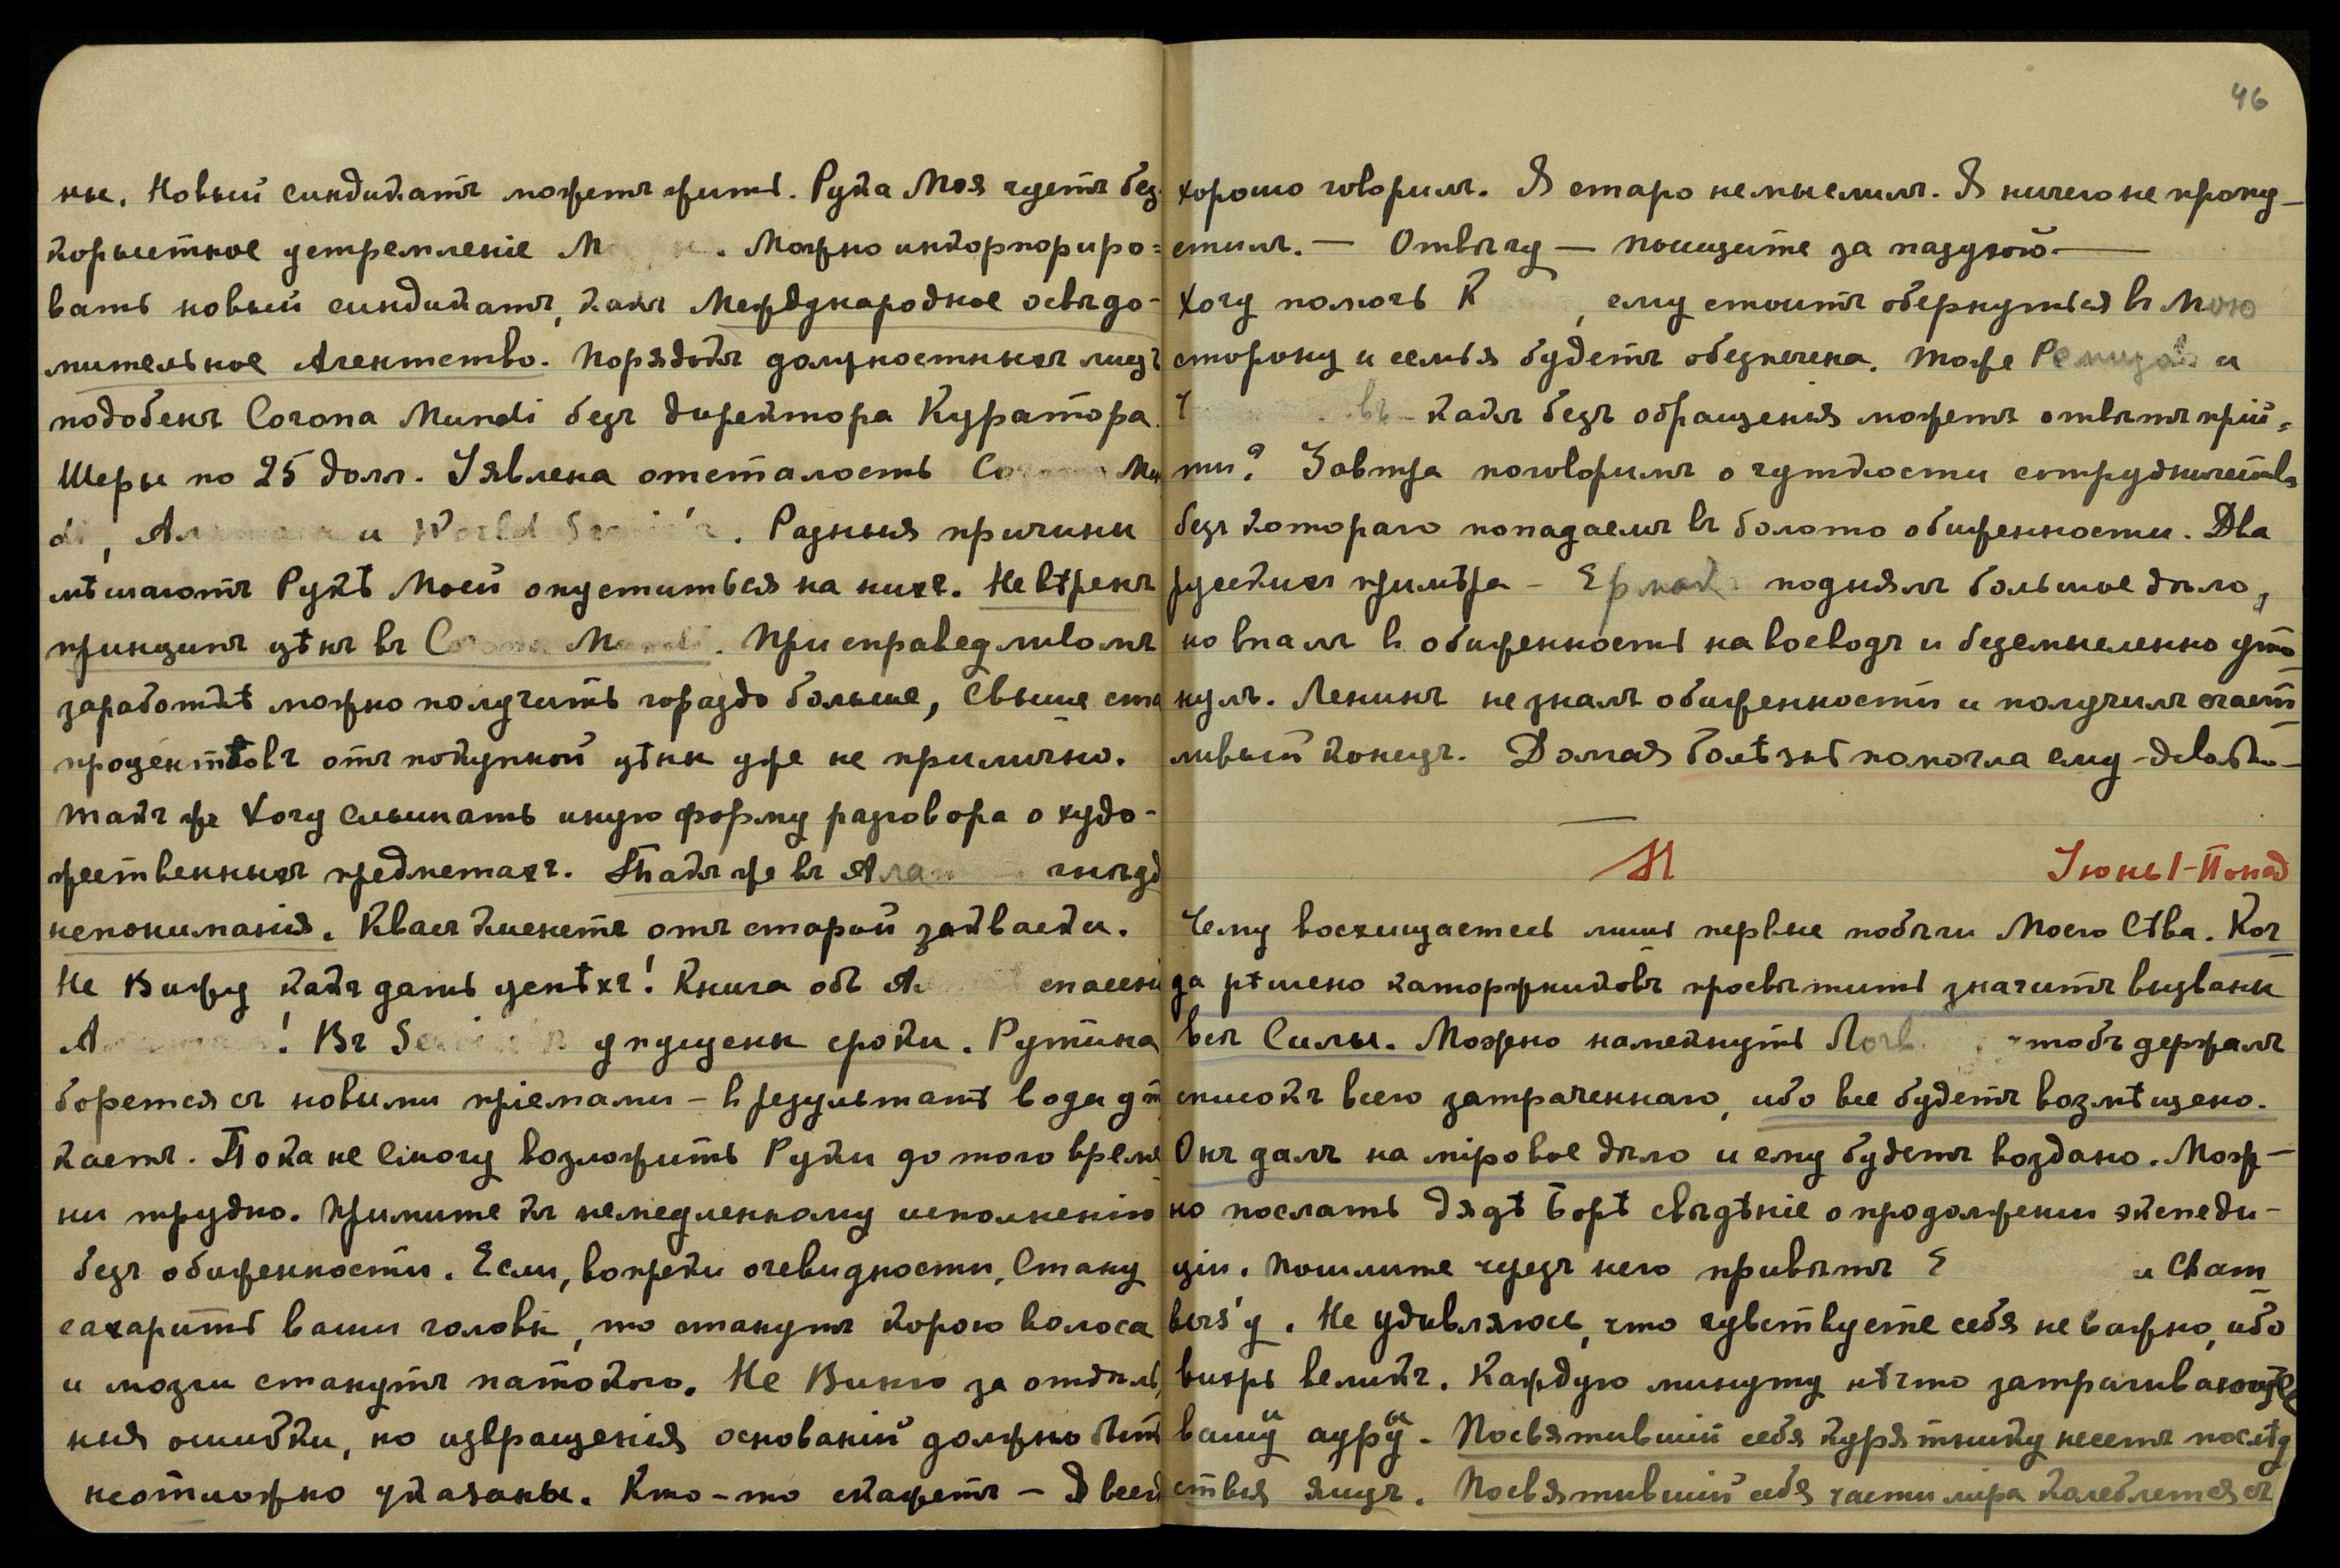 ны. Новый синдикатъ можетъ жить. Рука Моя чуетъ без
корыстное устремленіе М . Можно инкорпориро=
вать новый синдикатъ, какъ Международное освѣдо-
мительное Агентство. Порядокъ должностныхъ лицъ
подобенъ Corona Mundi безъ директора Куратора.
Шеры по 25 долл. Явлена отсталость Corona Mun
di, и World Service'a. Разныя причины
мѣшаютъ Рукѣ Моей опуститься на нихъ. Не вѣренъ
принципъ цѣнъ въ Corona Mundi. При справедливомъ
заработкѣ можно получить гораздо больше, свыше ста
процентовъ отъ покупной цѣны уже не прилично.
Такъ же хочу слышать иную форму разговора о худо-
жественныхъ предметахъ. Такъ же въ Ала гнѣздо
непониманія. Квасъ киснетъ отъ старой закваски.
Не Вижу какъ дать успѣхъ! Книга объ А спасені
А ! Въ упущены сроки. Рутина
борется съ новыми пріемами – въ результатѣ вода ут
каетъ. Пока не Смогу возложить Руки до того време
ни трудно. Примите къ немедленному исполненію
безъ обиженности. Если, вопреки очевидности, Стану
сахарить ваши головы, то станутъ корою волоса
и мозги станутъ патокою. Не Виню за отдѣль
ныя ошибки, но извращенія основаній должно быть
неотложно указаны. Кто-то скажетъ – Я всегд
46
хорошо говорилъ. Я старо не мыслилъ. Я ничего не пропу-
стилъ. — Отвѣчу — поищите за пазухой. —
Хочу помочь К , ему стоитъ обернуться въ Мою
сторону и семья будетъ обезпечена. Тоже и
въ – какъ безъ обращенія можетъ отвѣтъ прій=
ти? Завтра поговоримъ о чуткости сотрудничества
безъ котораго попадаемъ въ болото обиженности. Два
русскихъ примѣра – Ермакъ поднялъ большое дѣло,
но впалъ въ обиженность на воеводъ и безсмысленно уто
нулъ. Ленинъ не зналъ обиженности и получилъ счаст
ливый конецъ. Долгая болѣзнь помогла ему –
Іюнь 1 – Понед
Чему восхищаетесь лишь первые побѣги Моего Сѣва. Ког
да рѣшено каторжниковъ просвѣтить значитъ вызваны
всѣ Силы. Можно намекнуть чтобъ держалъ
списокъ всего затраченнаго, ибо все будетъ возмѣщено.
Онъ далъ на міровое дѣло и ему будетъ воздано. Мож-
но послать Дядѣ Борѣ свѣдѣніе о продолженіи экспеди-
ціи. Пошлите чрезъ него привѣтъ Е и Сват
. Не удивляюсь, что чувствуете себя неважно, ибо
вихрь великъ. Каждую минуту нѣчто затрагиваютъ
вашу ауру. Посвятившій себя курятнику несетъ послѣд
ствія яицъ. Посвятившій себя части міра колеблется съ